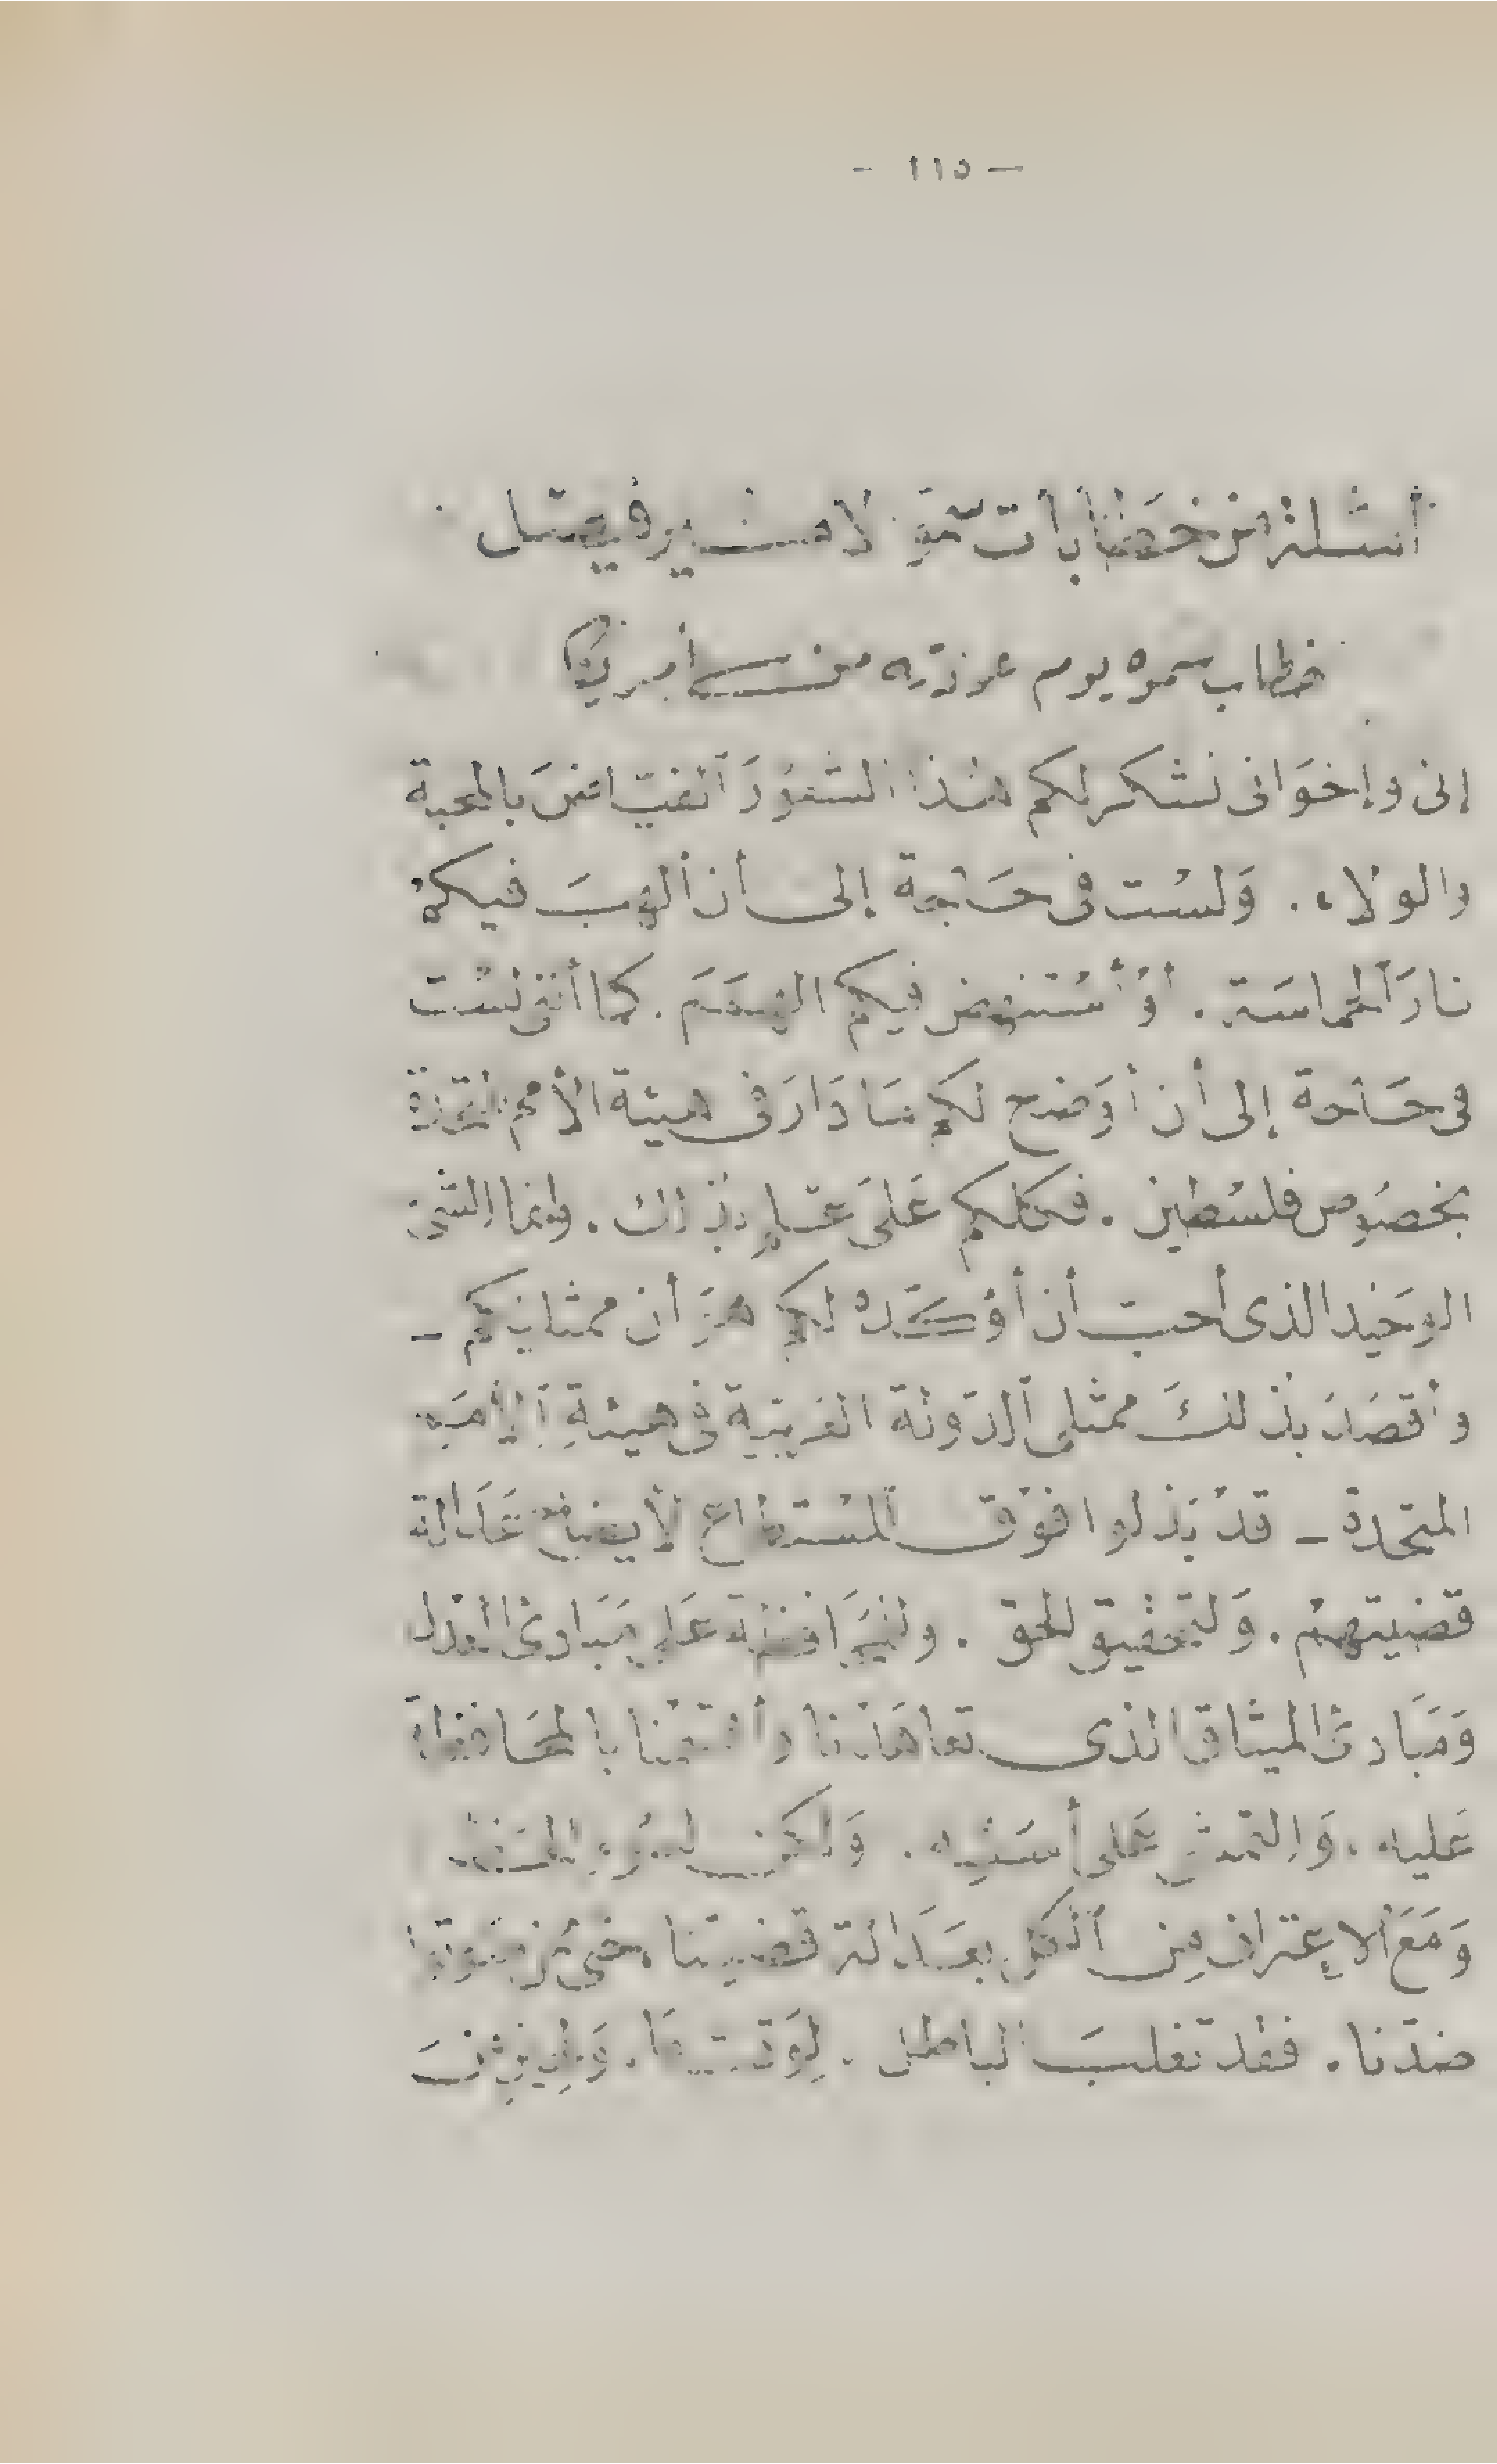 - ١١٥ -
أمثلة من خطابات سمو الأمير فيصل
خطاب سموه يوم عودته من أمريكا
إنى وإخوانى نشكر لكم هذا الشعور الفياض بالمحبة
والولاء . ولست فى حاجة إلى أن ألهب فيكم
نار الحماسة . أو أستنهض فيكم الهمم . كما أننى لست
فى حاجة إلى أن أوضح لكم ما دار فى هيئة الأمم المتحدة
بخصوص فلسطين . فكلكم على علم بذلك . وإنما الشىء
الوحيد الذى أحب أن أؤكده لكم هو أن ممثليكم -
وأقصد بذلك ممثلى الدول العربية فى هيئة الأمم
المتحدة - قد بذلوا فوق المستطاع لإيضاح عدالة
قضيتهم . ولتحقيق الحق . وللمحافظة على مبادئ العدل
ومبادئ الميثاق الذى تعاهدنا وأقسمنا بالمحافظة
عليه . والتمشى على أسسه . ولكن لسوء الحظ
ومع الاعتراف من الكل بعدالة قضيتنا ، حتى من صوتوا
ضدنا . فقد تغلب الباطل . لوقت ما .